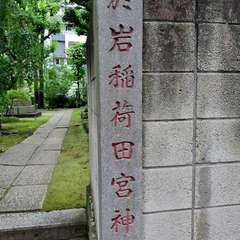 於岩稲荷田宮神